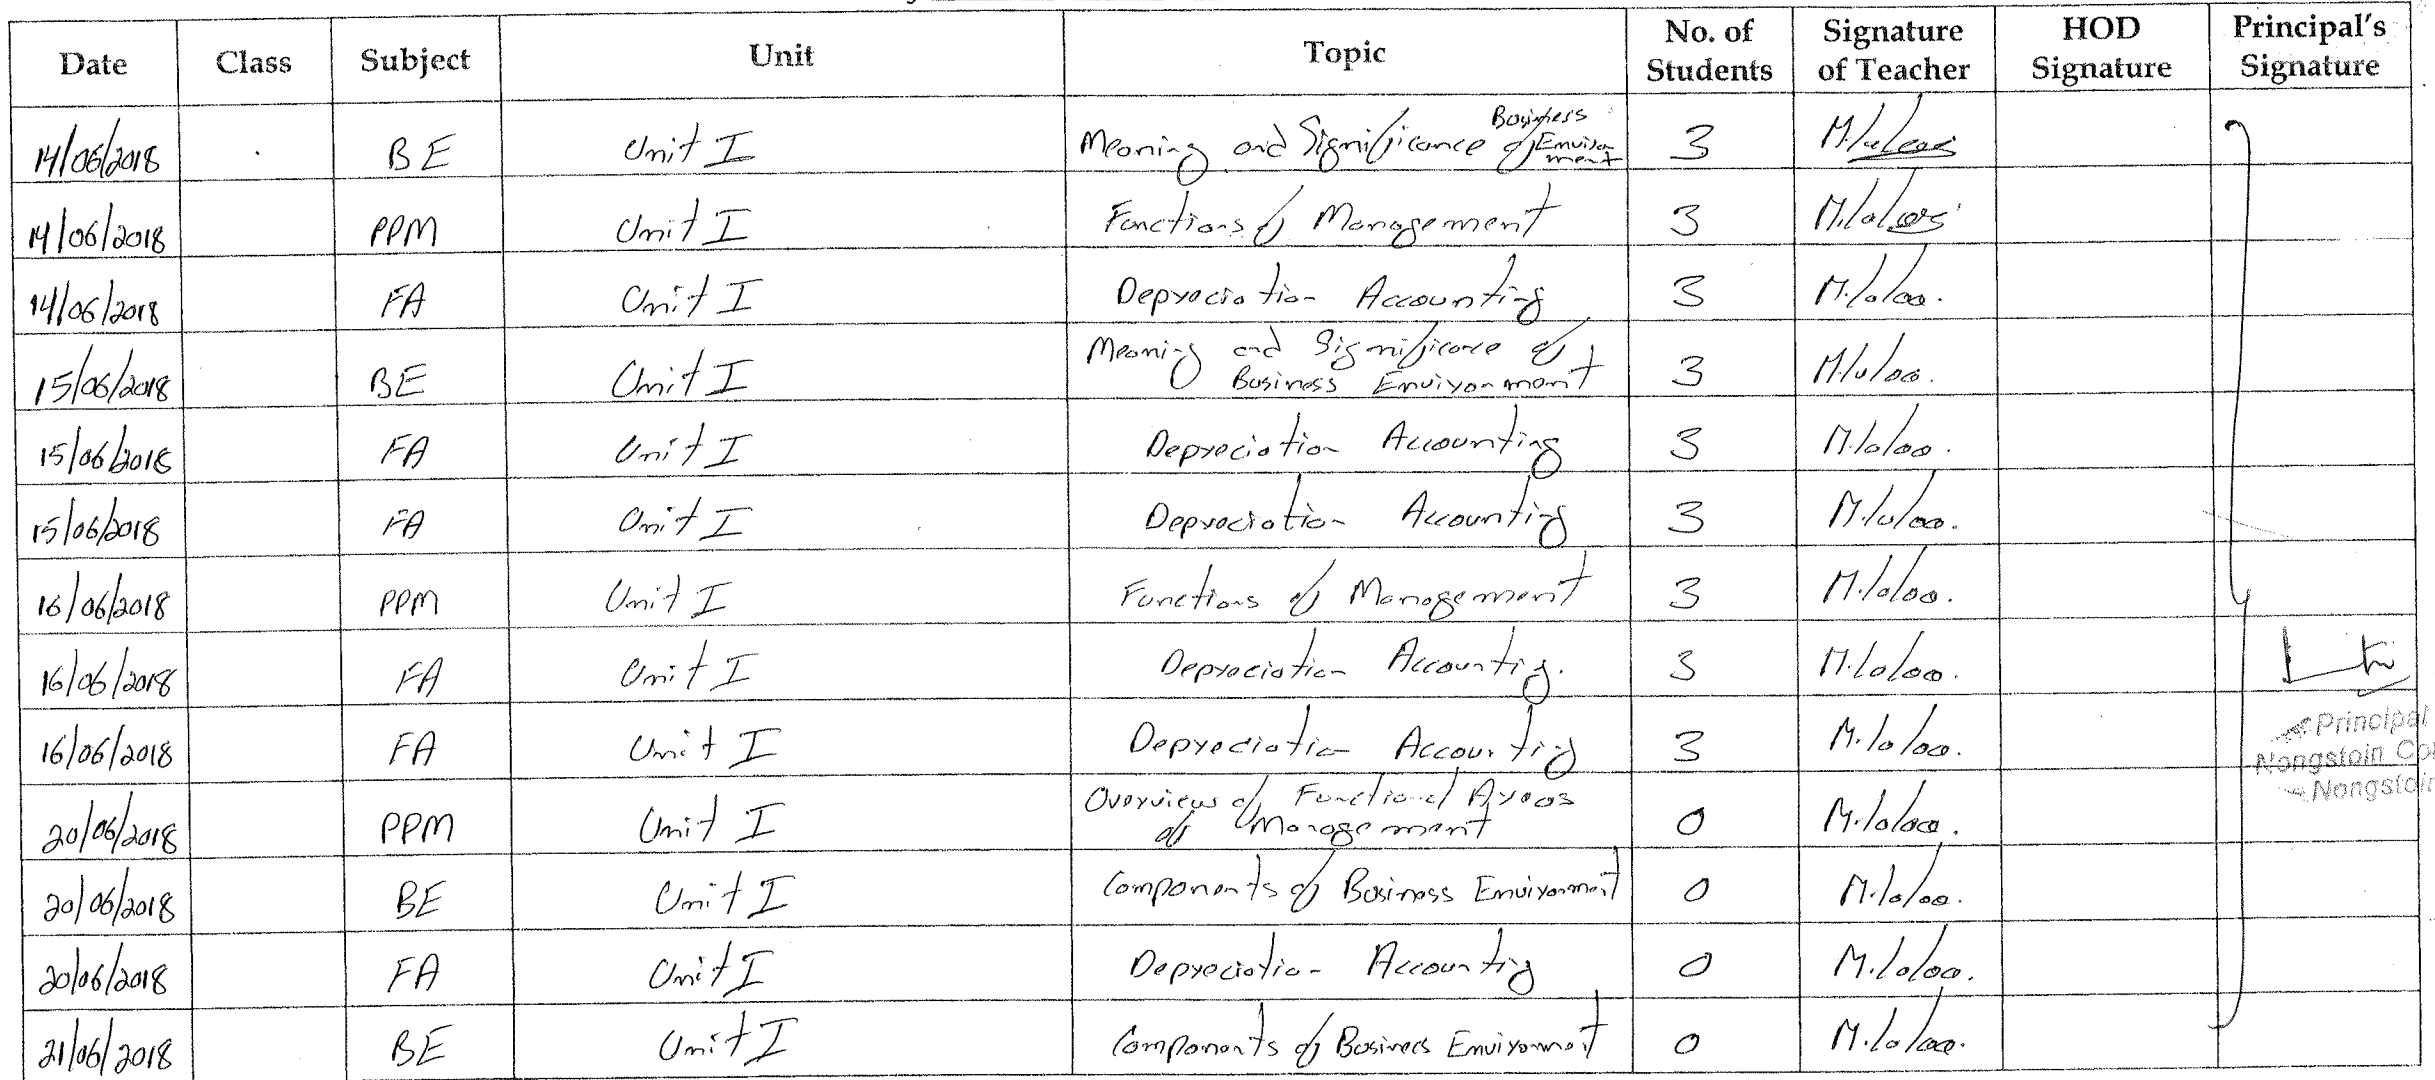 Date Class Subject Unit Topic No. of Students Signature of Teacher HOD Signature Principal's Signature
14/06/2018 BE Unit I Meaning and Significance of Business Environment 3
14/06/2018 PPM Unit I Functions of Management 3
14/06/2018 FA Unit I Depreciation Accounting 3
15/06/2018 BE Unit I Meaning and Significance of Business Environment 3
15/06/2018 FA Unit I Depreciation Accounting 3
15/06/2018 FA Unit I Depreciation Accounting 3
16/06/2018 PPM Unit I Functions of Management 3
16/06/2018 FA Unit I Depreciation Accounting. 3
16/06/2018 FA Unit I Depreciation Accounting 3
Principal
Nongstoin Col
Nongstoin
20/06/2018 PPM Unit I Overview of Functional Areas of Management 0
20/06/2018 BE Unit I Components of Business Environment 0
20/06/2018 FA Unit I Depreciation Accounting 0
21/06/2018 BE Unit I Components of Business Environment 0